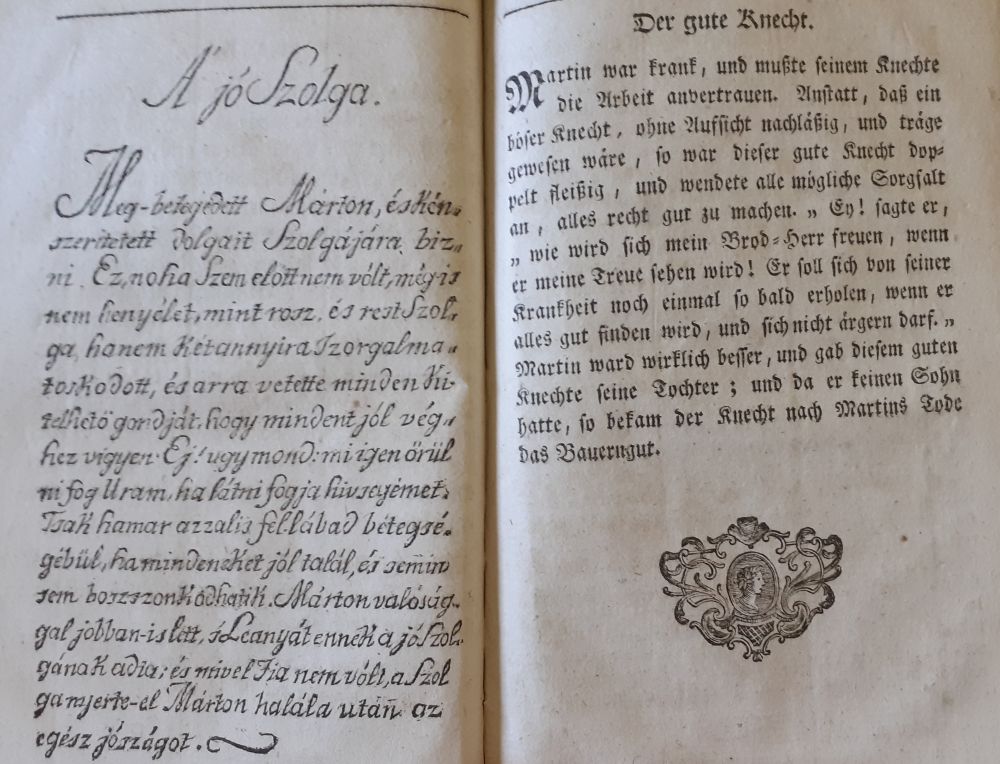 A' jó Szolga.
Meg-betegedett Márton, és kén„
szeritetett dolgait Szolgájára biz„
ni. Ez, noha Szem elött nem vólt, mégis
nem henyélet, mint rosz, és rest Szol„
ga, hanem kétannyira Szorgalma„
toskodott, és arra vetette minden ki„
telhető gondját, hogy mindent jól vég„
hez vigyen. Ej! ugy mond: mi igen örül
ni fog Uram, ha látni fogja hivségémet.
Tsak hamar azzalis fel lábad bétegsé„
gébül, ha mindeneket jól talál, és semin
sem boszszonkodhatik. Márton valóság„
gal jobban-is lett, s Leanyát ennek a jó Szol„
gának adia; és mivel Fia nem vólt, a Szol
ga nyerte-el Márton halála után az
egész jószágot.
Der gute Knecht.
Martin war krank, und mußte seinem Knechte
die Arbeit anvertrauen. Anstatt, daß ein
böser Knecht, ohne Aufsicht nachläßig, und träge
gewesen wäre, so war dieser gute Knecht dop-
pelt fleißig, und wendete alle mögliche Sorgfalt
an, alles recht gut zu machen. „ Ey! sagte er,
„ wie wird sich mein Brod-Herr freuen, wenn
er meine Treue sehen wird! Er soll sich von seiner
Krankheit noch einmal so bald erholen, wenn er
alles gut finden wird, und sich nicht ärgern darf. „
Martin ward wirklich besser, und gab diesem guten
Knechte seine Tochter; und da er keinen Sohn
hatte, so bekam der Knecht nach Martins Tode
das Bauerngut.